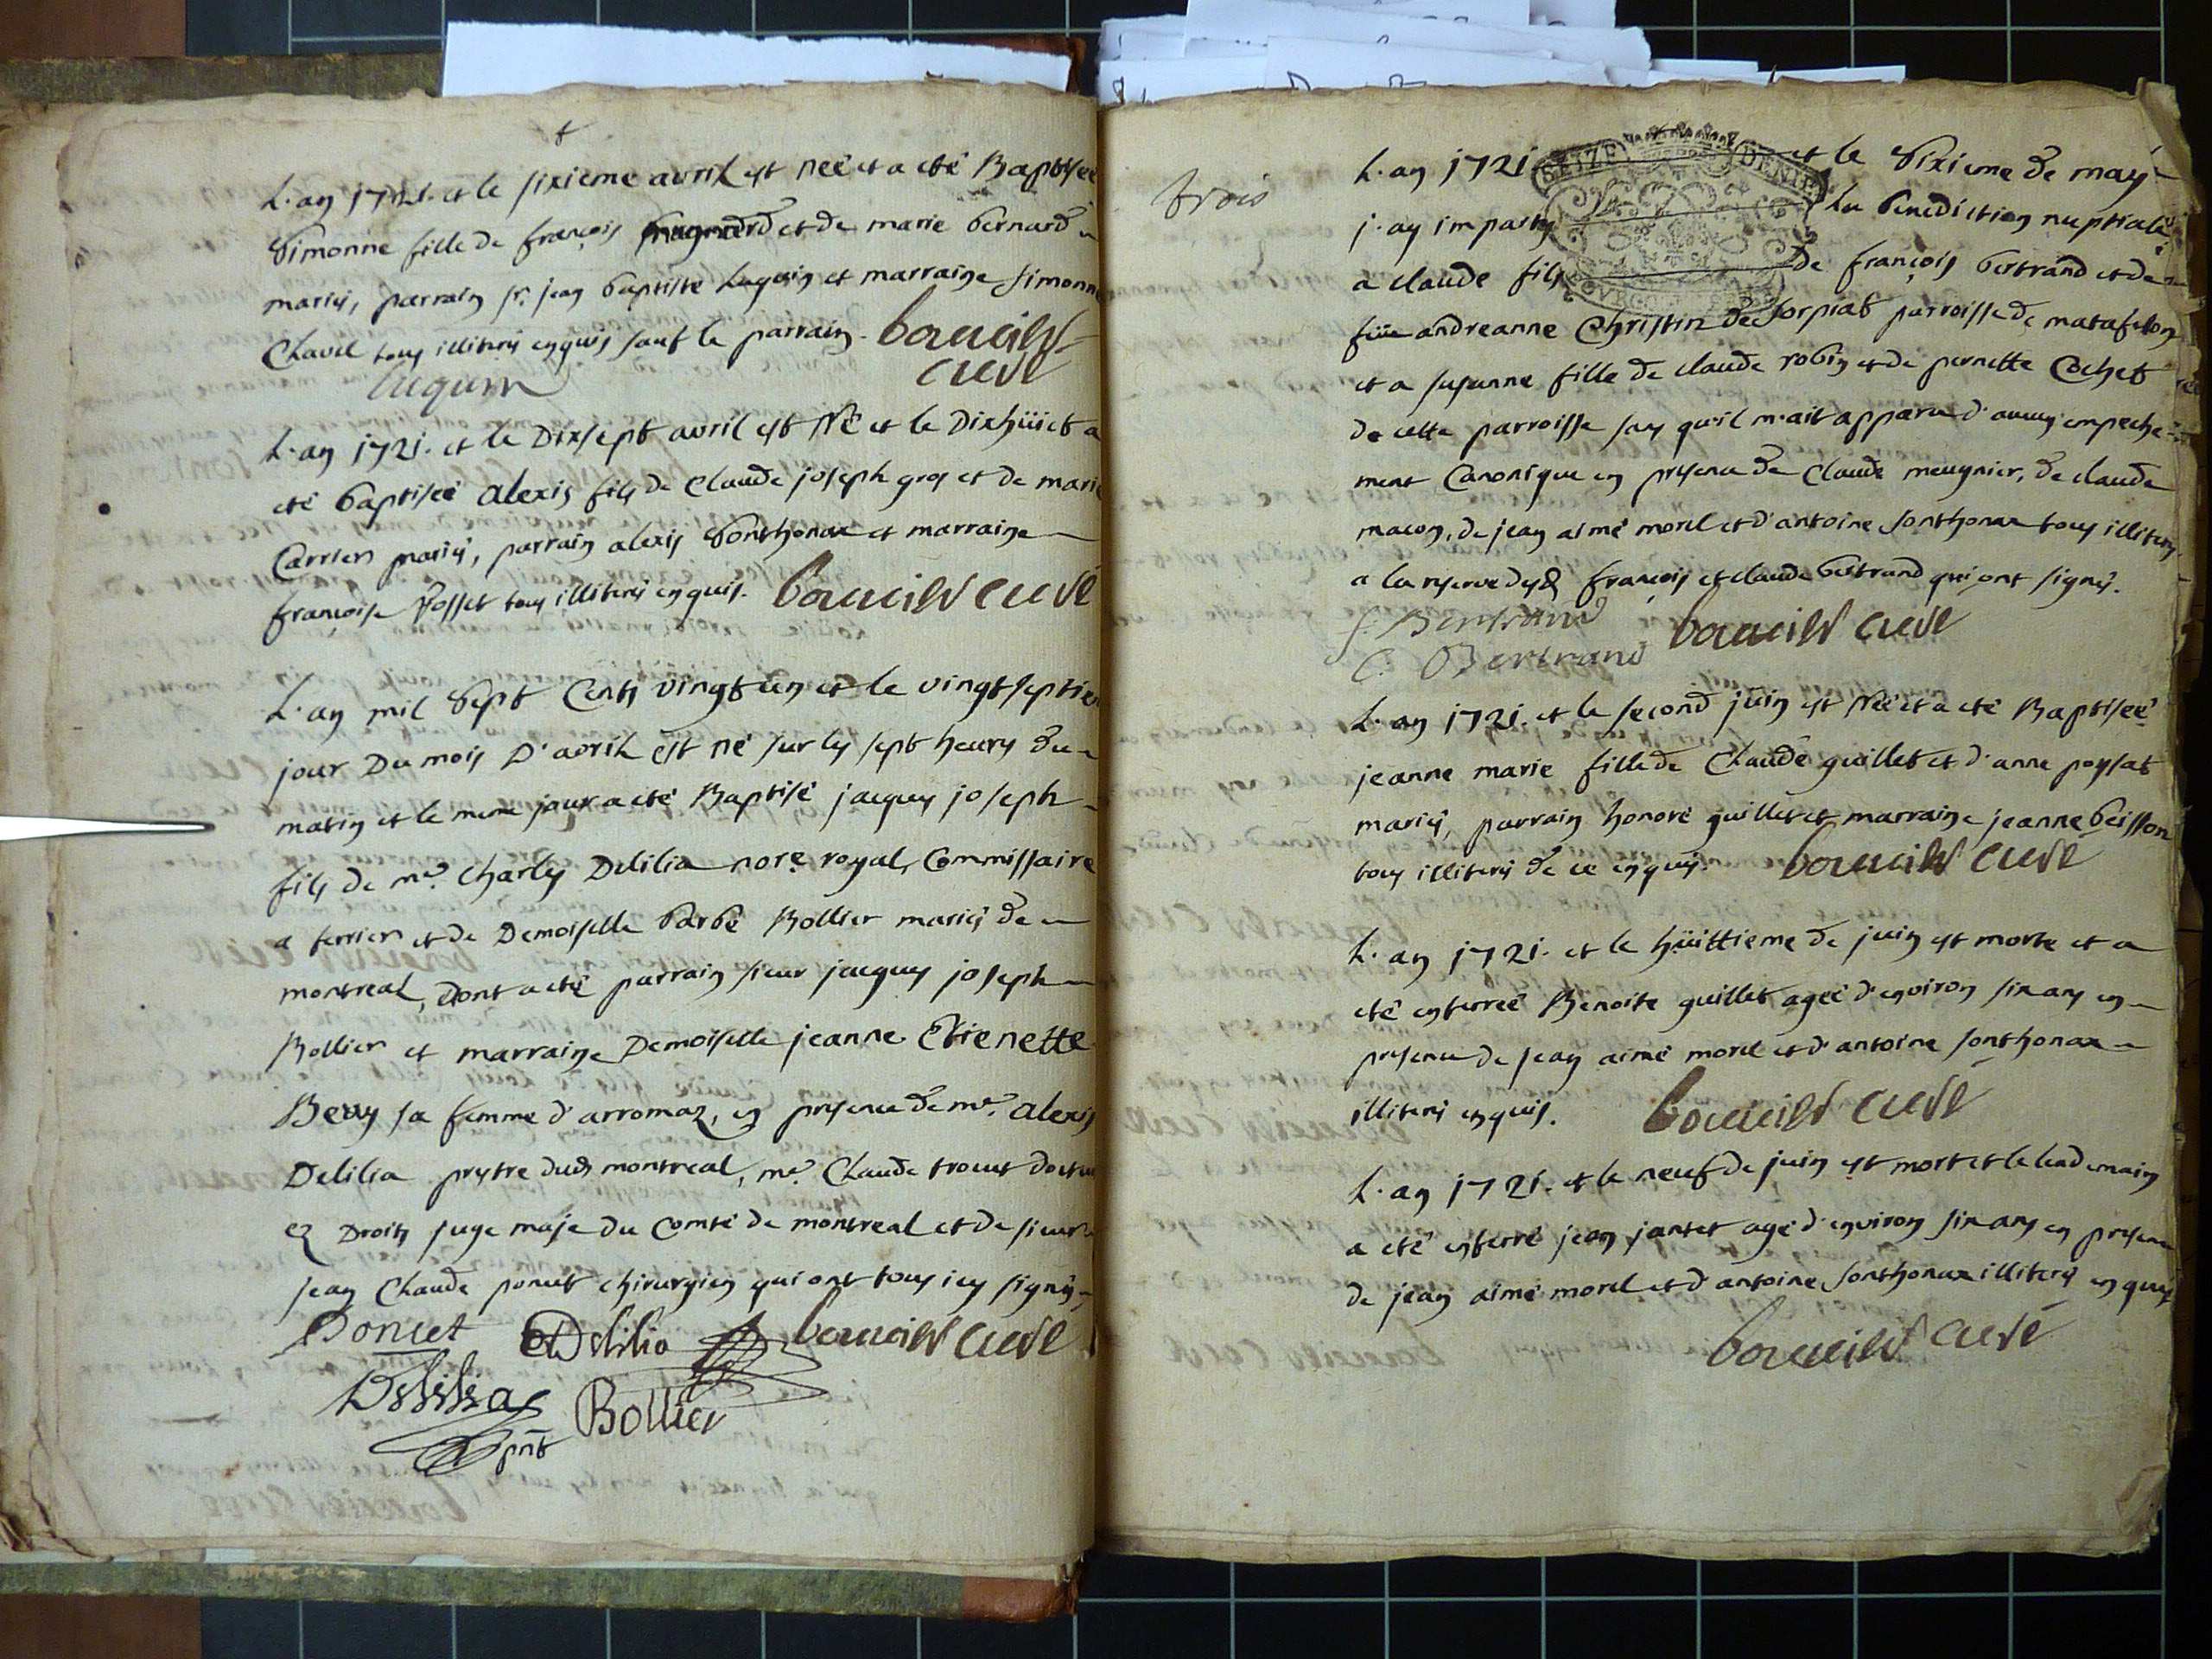 L'an 1721. et le sixieme avril est née et a eté Baptisée
Simonne fille de françois et de marie bernard
mariés, parrain sr. jean baptiste Luquin et marraine Simonne
Clavel tous illiterés enquis sauf le parrain. curé
Luquin
L'an 1721. et le Dixsept avril est Né et le Dixhüict a
eté baptiseé alexis fils de Claude joseph gros et de marie
Carrier mariés, parrain alexis Sonthonax et marraine
francoise Posset tous illiterés enquis. curé
L'an mil Sept Cents vingt un et le vingtseptie
jour Du mois D'avril est né sur les sept heures du
matin et le meme jour a eté Baptisé jacques joseph
fils de me. Charles Delilia nore. royal, Commissaire
a terrier et de Demoiselle barbe Bollier mariés de
montreal, Dont a eté parrain sieur jacques joseph
Bollier et marraine Demoiselle jeanne Etienette
sa femme d'arromaz, en presence de me. alexis
Delilia prestre dud montreal, me. Claude trocut docteur
ez Droits juge maje du Comté de montreal et de sieur
jean Claude poncet chirurgien qui ont tous icy signés
Poncet Delilia curé
Delilia Bollier
pnt
trois
SEIZE DENIE
L'an 1721 et le Sixieme de may
j'ay imparty La benediction nuptiale
a claude fils de françois bertrand et de
füe andreanne Christin de Sorpiat parroisse de matafelon
et a susanne fille de claude robin et de pernette Cochet
de cette parroisse sans qu'il m'ait apparu d'aucun empeche
ment Canonique en presence de Claude meugnier, de claude
macon, de jean aimé morel et d'antoine Sonthonax tous illiterés
a la reserve desd françois et claude bertrand qui ont signés.
f. Bertrand curé
C. Bertrand
L'an 1721. et le second juin est Née et a eté Baptiseé
jeanne marie fille de Claude guillet et d'anne poysat
mariés, parrain honoré guillet et marraine jeanne beisson
tous illiterés de ce enquis. curé
L'an 1721. et le hüittieme de juin est morte et a
eté enterreé Benoite guillet ageé d'environ six ans en
presence de jean aimé morel et d'antoine sonthonax
illiterés enquis. curé
L'an 1721. et le neuf de juin est mort et le lendemain
a eté enterré jean jantet agé d'environ six ans en presence
de jean aimé morel et d'antoine Sonthonax illiterés enquis
curé